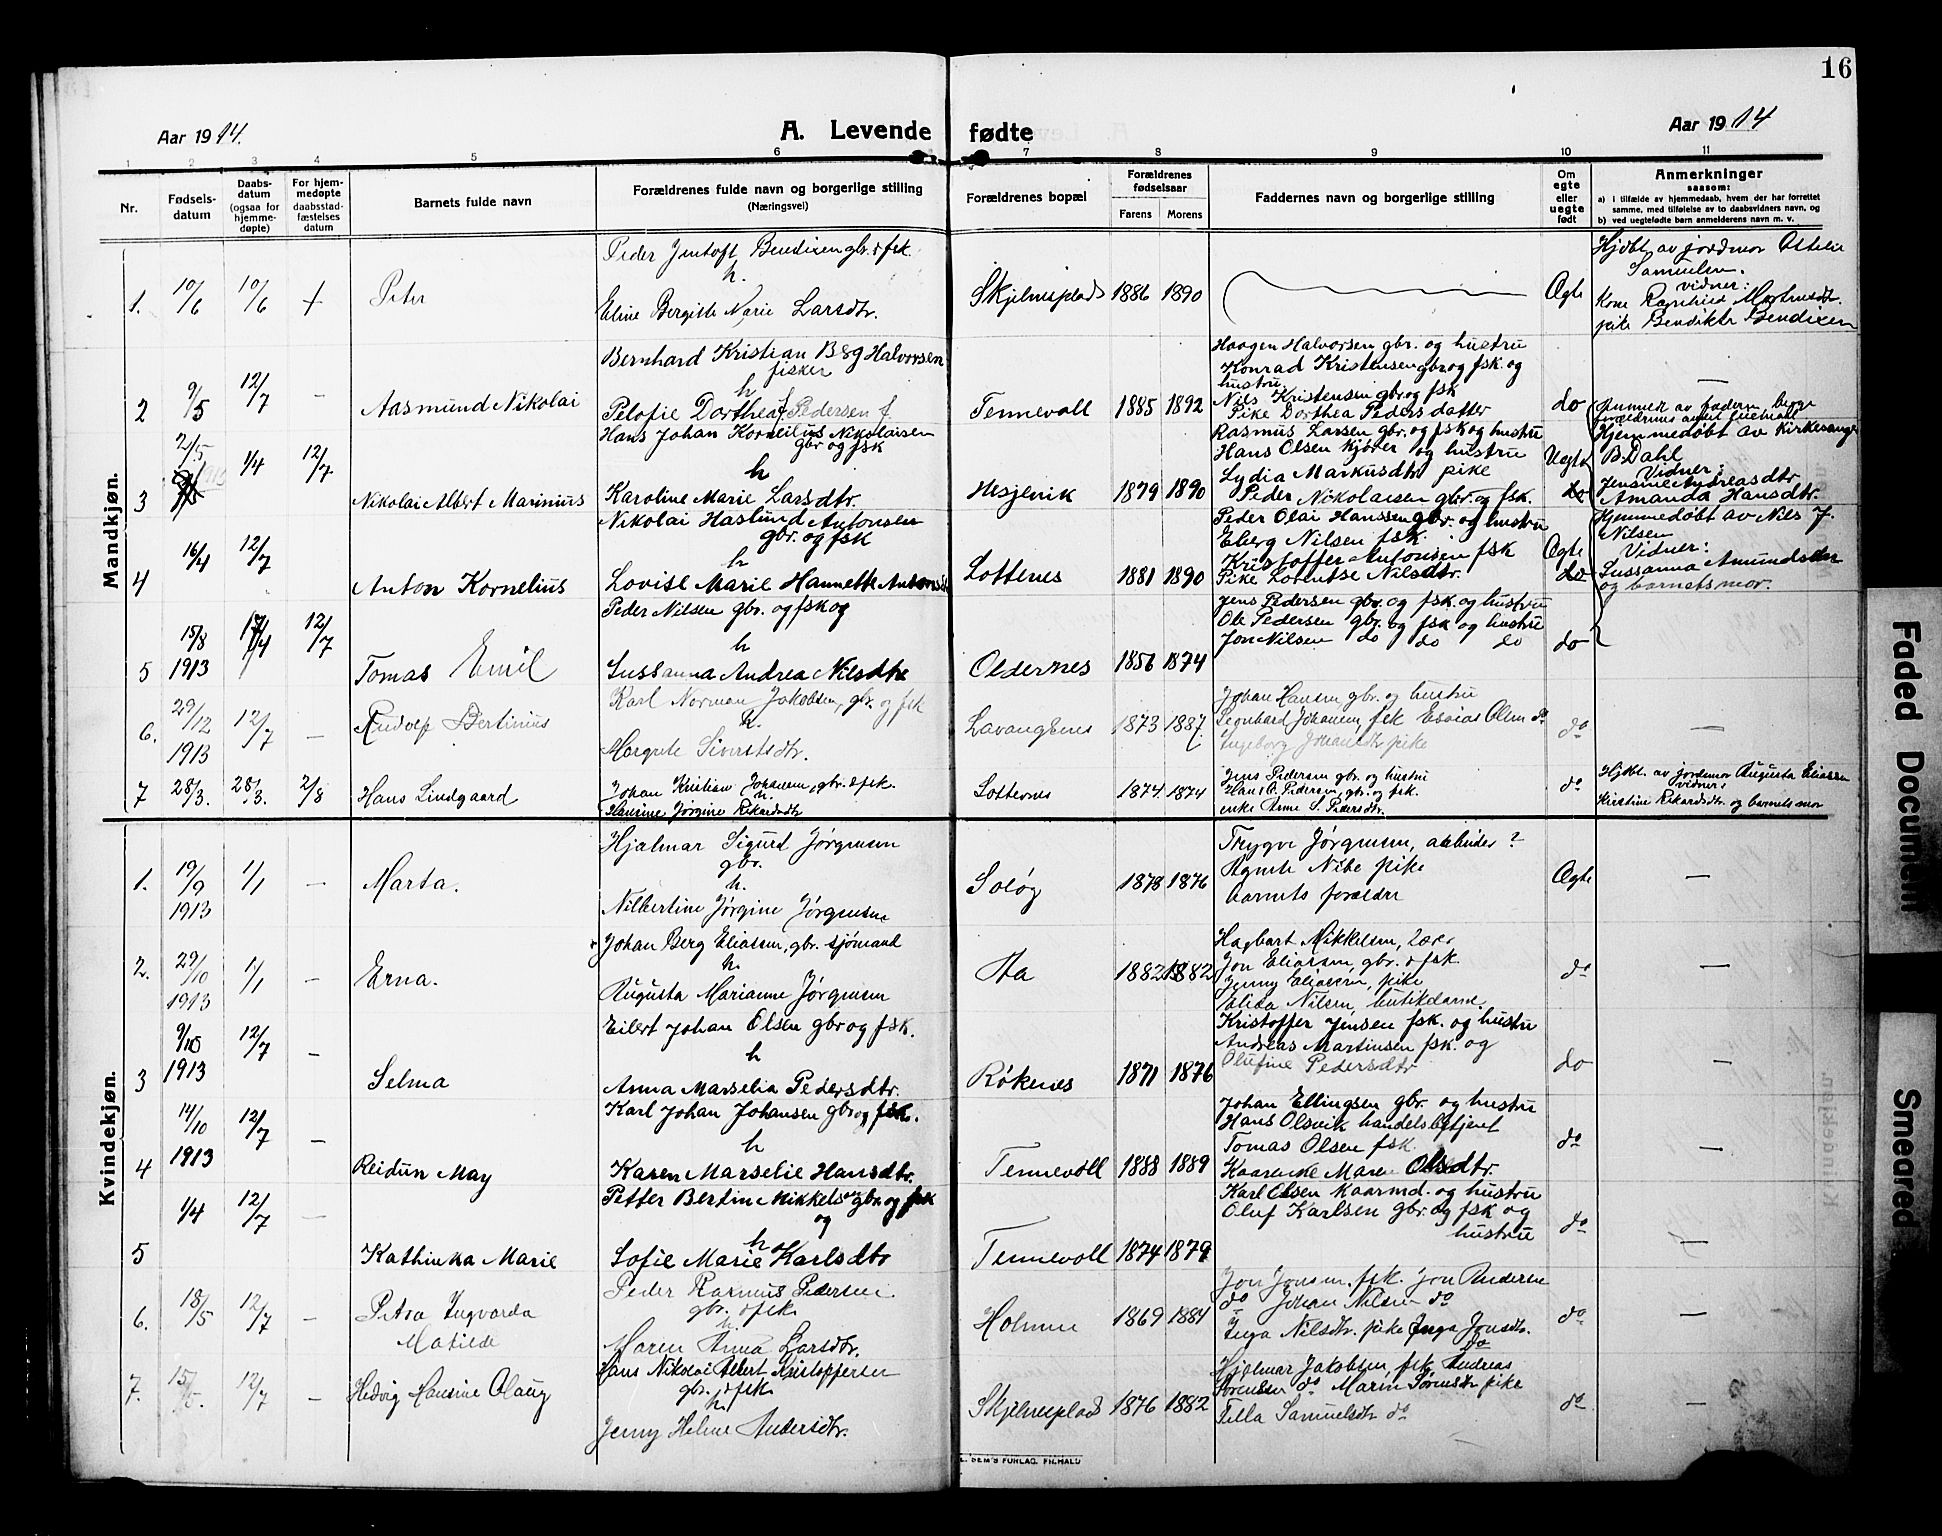 16
Aar 1914.
A. Levende fødte
Aar 1914
1 2 3 4 5 6 7 8 9 10 11
Nr.
Fødsels-
datum
Daabs-
datum
(ogsaa for
hjemme-
døpte)
For hjem-
medøpte
daabsstad-
fæstelses
datum
Barnets fulde navn
Forældrenes fulde navn og borgerlige stilling
(Næringsvei)
Forældrenes bopæl
Forældrenes
fødselsaar
Farens Morens
Faddernes navn og borgerlige stilling
Om
egte
eller
uegte
født
Anmerkninger
saasom:
a) i tilfælde av hjemmedaab, hvem der har forrettet
samme, med tilføielse av to daabsvidners navn, og
b) ved uegtefødte barn anmelderens navn m. v.
Mandkjøn.
1. 10/6 10/6 + Peter
Peder Jentoft Bendixen gbr. & fsk.
h.
Eline Bergitte Marie Larsdtr.
Skjelnesplads 1886 1890 Ægte
Hjdbt. av jordmor
vidner:
Kone Ragnhild
pike Bendikte Bendixen
2 9/5 12/7 – Aasmund Nikolai
Bernhard Kristian Berg Halvorsen
fisker
h
Pelofie Dorthea Pedersen f.
Tennevoll 1885 1892
Haagen Halvorsen gbr. og hustru
Konrad Kristensen gbr og fsk. og
hustru.
Nils Kristensen gbr og fsk
Pike Dorthea Pedersdatter
do –
3 2/5 1/4 12/7 Nikolai Albert Marinius
Hans Johan Kornelius Nikolaisen
gbr og fsk
h
Karoline Marie Larsdtr.
Hesjevik 1879 1890
Rasmus Larsen gbr. og fsk og hustru
Hans Olsen Kjører og hustru
Lydia Markusdtr pike
Peder Nikolaisen gbr. og fsk.
Uegte
do
av faderen, begge
Hjemmedøbt av Kirkesanger
B. Dahl
Vidner:
Jensine Andreasdtr
Amanda Hansdtr.
4 16/4 12/7 Anton Kornelius
Nikolai Haslund Antonsen
gbr. og fsk
h
Lovise Marie Hannette
Lottenes 1881 1890
Peder Olai Hanssen gbr. og hustru
Eberg Nilsen fsk.
Kristoffer Antonsen fsk
Pike Lorentse Nilsdtr.
Ægte
do
Hjemmedøbt av Nils J.
Nilsen
Vidner:
Sussanna Amundsdtr
og barnets mor.
5 15/8 1913 12/7 Tomas Emil
Peder Nilsen gbr. og fsk og
h
Sussanna Andrea Nilsdtr
Oldernes 1856 1874
Jens Pedersen gbr. og fsk. og hustru
Ole Pedersen gbr. og fsk og hustru
Jon Nilsen do do do
do
6. 29/12 1913 12/7 – Rudolf Bertinius
Karl Norman Jakobsen, gbr. og fsk
h.
Margrete Sivertsdtr.
Lavangsnes 1873 1887.
Johan Hansen gbr. og hustru
Leonhard Johansen, fsk Esaias Olsen do
Ingeborg Johansdtr pike
do –
7 28/3. 28/3. 2/8 Hans Lindgaard
Johan Kristian Johansen, gbr. & fsk.
h.
Hansine Jørgine Rikardsdtr
Lottenes 1874 1874
Jens Pedersen gbr. og hustru
Hans P. Pedersen, gbr. og fsk.
enke Anne S. Pedersdtr.
do
Hjdbt. av jordemor Augusta Eliassen
vidner:
Kirstine Rikardsdtr. og barnets mor
Kvindekjøn.
1. 19/9 1913 1/1 – Marta.
Hjalmar Sigurd Jørgensen
gbr.
h.
Nilbertine Jørgine Jørgensen
Soløy 1878 1876
Trygve Jørgensen, arbeider ?
Agnete Nibe pike
barnets forældre
Ægte –
2. 29/10 1913 1/1 – Erna.
Johan Berg Eliassen, gbr. sjømand
h.
Augusta Marianne Jørgensen
Aa 1882 1882
Hagbart Mikkelsen, Lærer
Jon Eliassen, gbr. & fsk.
Jenny Eliassen, pike
Elida Nilsen, butikdame.
do –
3 9/10 1913 12/7 – Selma
Eilert Johan Olsen gbr og fsk.
h
Anna Marselia Pedersdtr.
Røkenes 1871 1876
Kristoffer Jensen fsk. og hustru
Andreas Martinsen fsk. og
Olufine Pedersdtr
do –
4 14/10 1913 12/7 – Reidun May
Karl Johan Johansen gbr og fsk.
h
Karen Marselie Hansdtr.
Tennevoll 1888 1889
Johan Ellingsen gbr. og hustru
Hans Olsvik handelsbetjent
Tomas Olsen fsk
Kaarenne Maren Olsdtr.
do –
5 1/4 12/7 – Kathinka Marie
Petter Bertin Mikkelsen gbr. og fsk
og
h
Sofie Marie Karlsdtr
Tennevoll 1874 1879
Karl Olsen Kaarmd. og hustru
Oluf Karlsen gbr. og fsk og
hustru
do –
6. 18/5 12/7 – Petra Ingvarda
Matilde
Peder Rasmus Pedersen
gbr. & fsk.
h
Maren Anna Larsdtr.
Holmen 1869 1884
Jon Jonsen, fsk. Jon Andersen
do Johan Nilsen do
Inga Nilsdtr. pike Inga Jonsdtr.
do
do –
7. 15/5. 12/7 – Hedvig Hansine Olaug
Hans Nikolai Albert Kristoffersen
gbr. & fsk.
h.
Jenny Helene Andersdtr.
Skjelnesplads 1876 1882
Hjelmar Jakobsen fsk Andreas
Sørensen do Marin Sørensdtr pike
Tilla Samuelsdtr do
do –
FORLAG, FR.HALD
Faded Document
Smeared